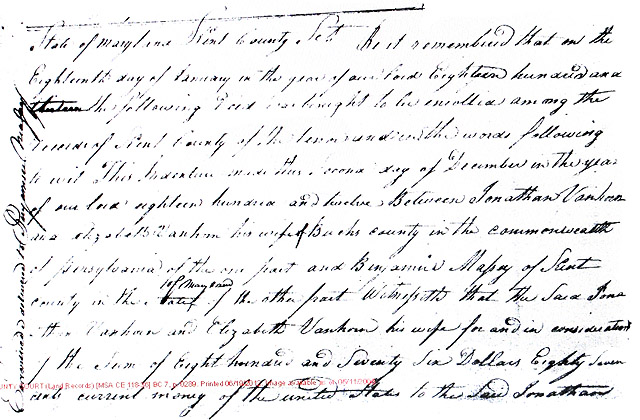 State of Maryland Kent County Sct Be it remembered that on the
Eighteenth day of January in the year of our lord Eighteen hundred and
thirteen the following Deed was brought to be enrolled among the
records of Kent County of the tenor and in the words following
to wit This Indenture made this Second day of December in the year
of our lord eighteen hundred and twelve Between Jonathan Vanhorn
and Elizabeth Vanhorn his wife of Bucks county in the commonwealth
of pensylvania of the one part and Benjamin Massy of Kent
county in the State of Maryland of the other part Witnesseth that the Said Jona
than Vanhorn and Elizabeth Vanhorn his wife for and in consideration
of the Sum of Eight hundred and Seventy Six Dollars Eighty Seven
cents current money of the united States to the Said Jonathan
Examined & delivered to Benjamin Massy
COURT (Land Records) [MSA CE 118-16] BC 7, p. 0289. Printed 06/19/2012. Image available as of 05/11/2004.